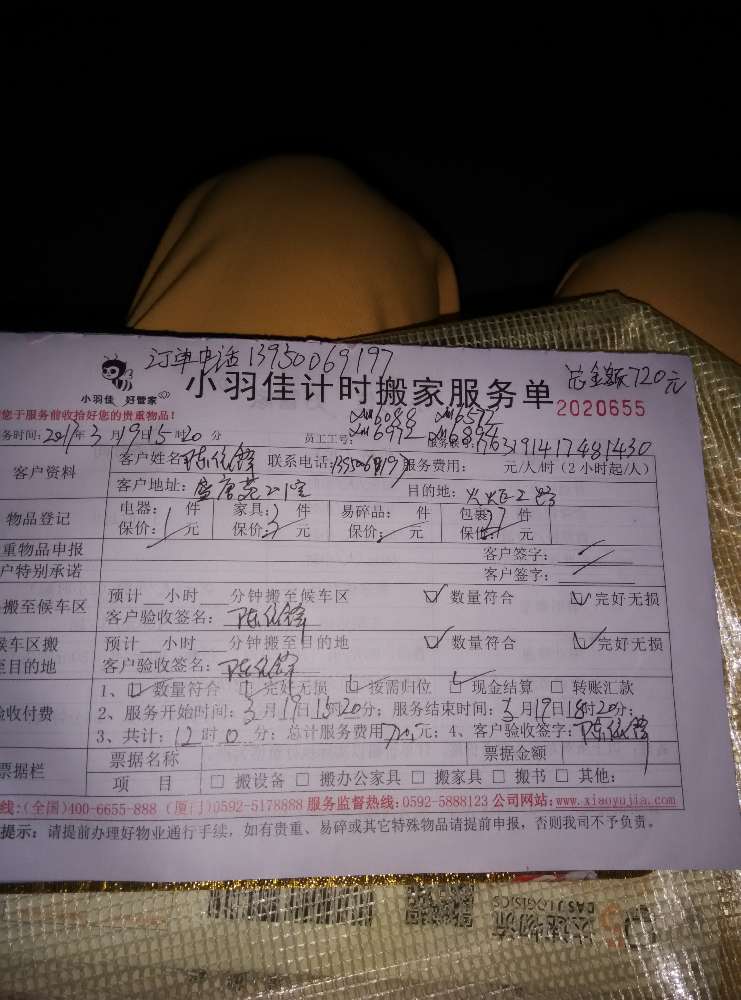 订单电话 13950069197
总金额720元
小羽佳 好管家
小羽佳计时搬家服务单
2020655
您于服务前收拾好您的贵重物品!
务时间:2017年3月19日15时20分
员工工号:
服务账号:
客户资料
客户姓名 联系电话: 服务费用: 元/人/时(2小时起/人)
客户地址: 目的地:
物品登记
电器:1件 家具:2件 易碎品: 件 包裹: 件
保价: 元 保价: 元 保价: 元 保价: 元
重物品申报 客户签字:
户特别承诺 客户签字:
搬至候车区
预计 小时 分钟搬至候车区 数量符合 完好无损
客户验收签名:
候车区搬
至目的地
预计 小时 分钟搬至目的地 数量符合 完好无损
客户验收签名:
验收付费
1、 数量符合 完好无损 按需归位 现金结算 转账汇款
2、服务开始时间:3月19日15时20分;服务结束时间:3月19日18时20分;
3、共计:12时0分;总计服务费用720元;4、客户验收签字:
票据栏
票据名称 票据金额
项 目 搬设备 搬办公家具 搬家具 搬书 其他:
线:(全国)400-6655-888 (厦门)0592-5178888 服务监督热线:0592-5888123 公司网站:www.xiaoyujia.com
提示:请提前办理好物业通行手续,如有贵重、易碎或其它特殊物品请提前申报,否则我司不予负责。
物流